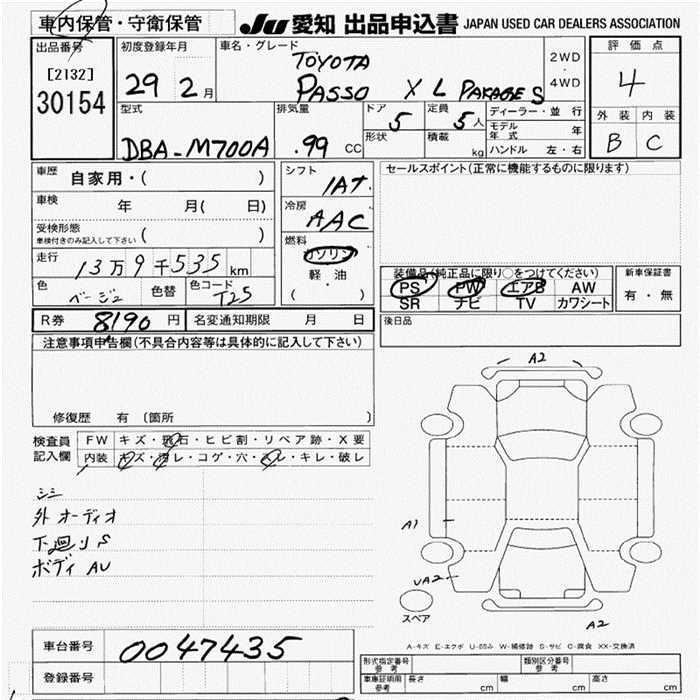 車内保管・守衛保管
JU 愛知 出品申込書 JAPAN USED CAR DEALERS ASSOCIATION
出品番号
[2132]
30154
初度登録年月
29 2月
車名・グレード
TOYOTA
PASSO X L PAKAGE S
2WD
・
4WD
評価点
4
外装 内装
B C
型式
DBA-M700A
排気量
.99 CC
ドア
5
形状
定員
5人
積載
kg
ディーラー・並行
モデル年式 年
ハンドル 左・右
車歴 自家用・( )
車検 年 月( 日)
受検形態
車検付きのみ記入して下さい ( )
走行
13万9千535km
色
ベージュ
色替
色コード
T25
シフト
IAT
冷房
AAC
燃料
ガソリン
軽油
( )
セールスポイント(正常に機能するものに限ります)
装備品(純正品に限り○をつけてください)
PS PW エアB AW
SR ナビ TV カワシート
新車保証書
有・無
R券 8190円
名変通知期限 月 日
後日品
注意事項申告欄(不具合内容等は具体的に記入して下さい)
修復歴 有 〔箇所 〕
検査員
記入欄
FW キズ・飛石・ヒビ割・リペア跡・X要
内装 キズ・汚レ・コゲ・穴・スレ・キレ・破レ
シミ
外オーディオ
下廻りS
ボディAU
A2
A1
UA2
A2
スペア
A-キズ E-エクボ U-凹み W-補修跡 S-サビ C-腐食 XX-交換済
車台番号
0047435
登録番号
形式指定番号
参考
類別区分番号
参考
車庫証明用
参考
長さ cm
幅 cm
高さ cm